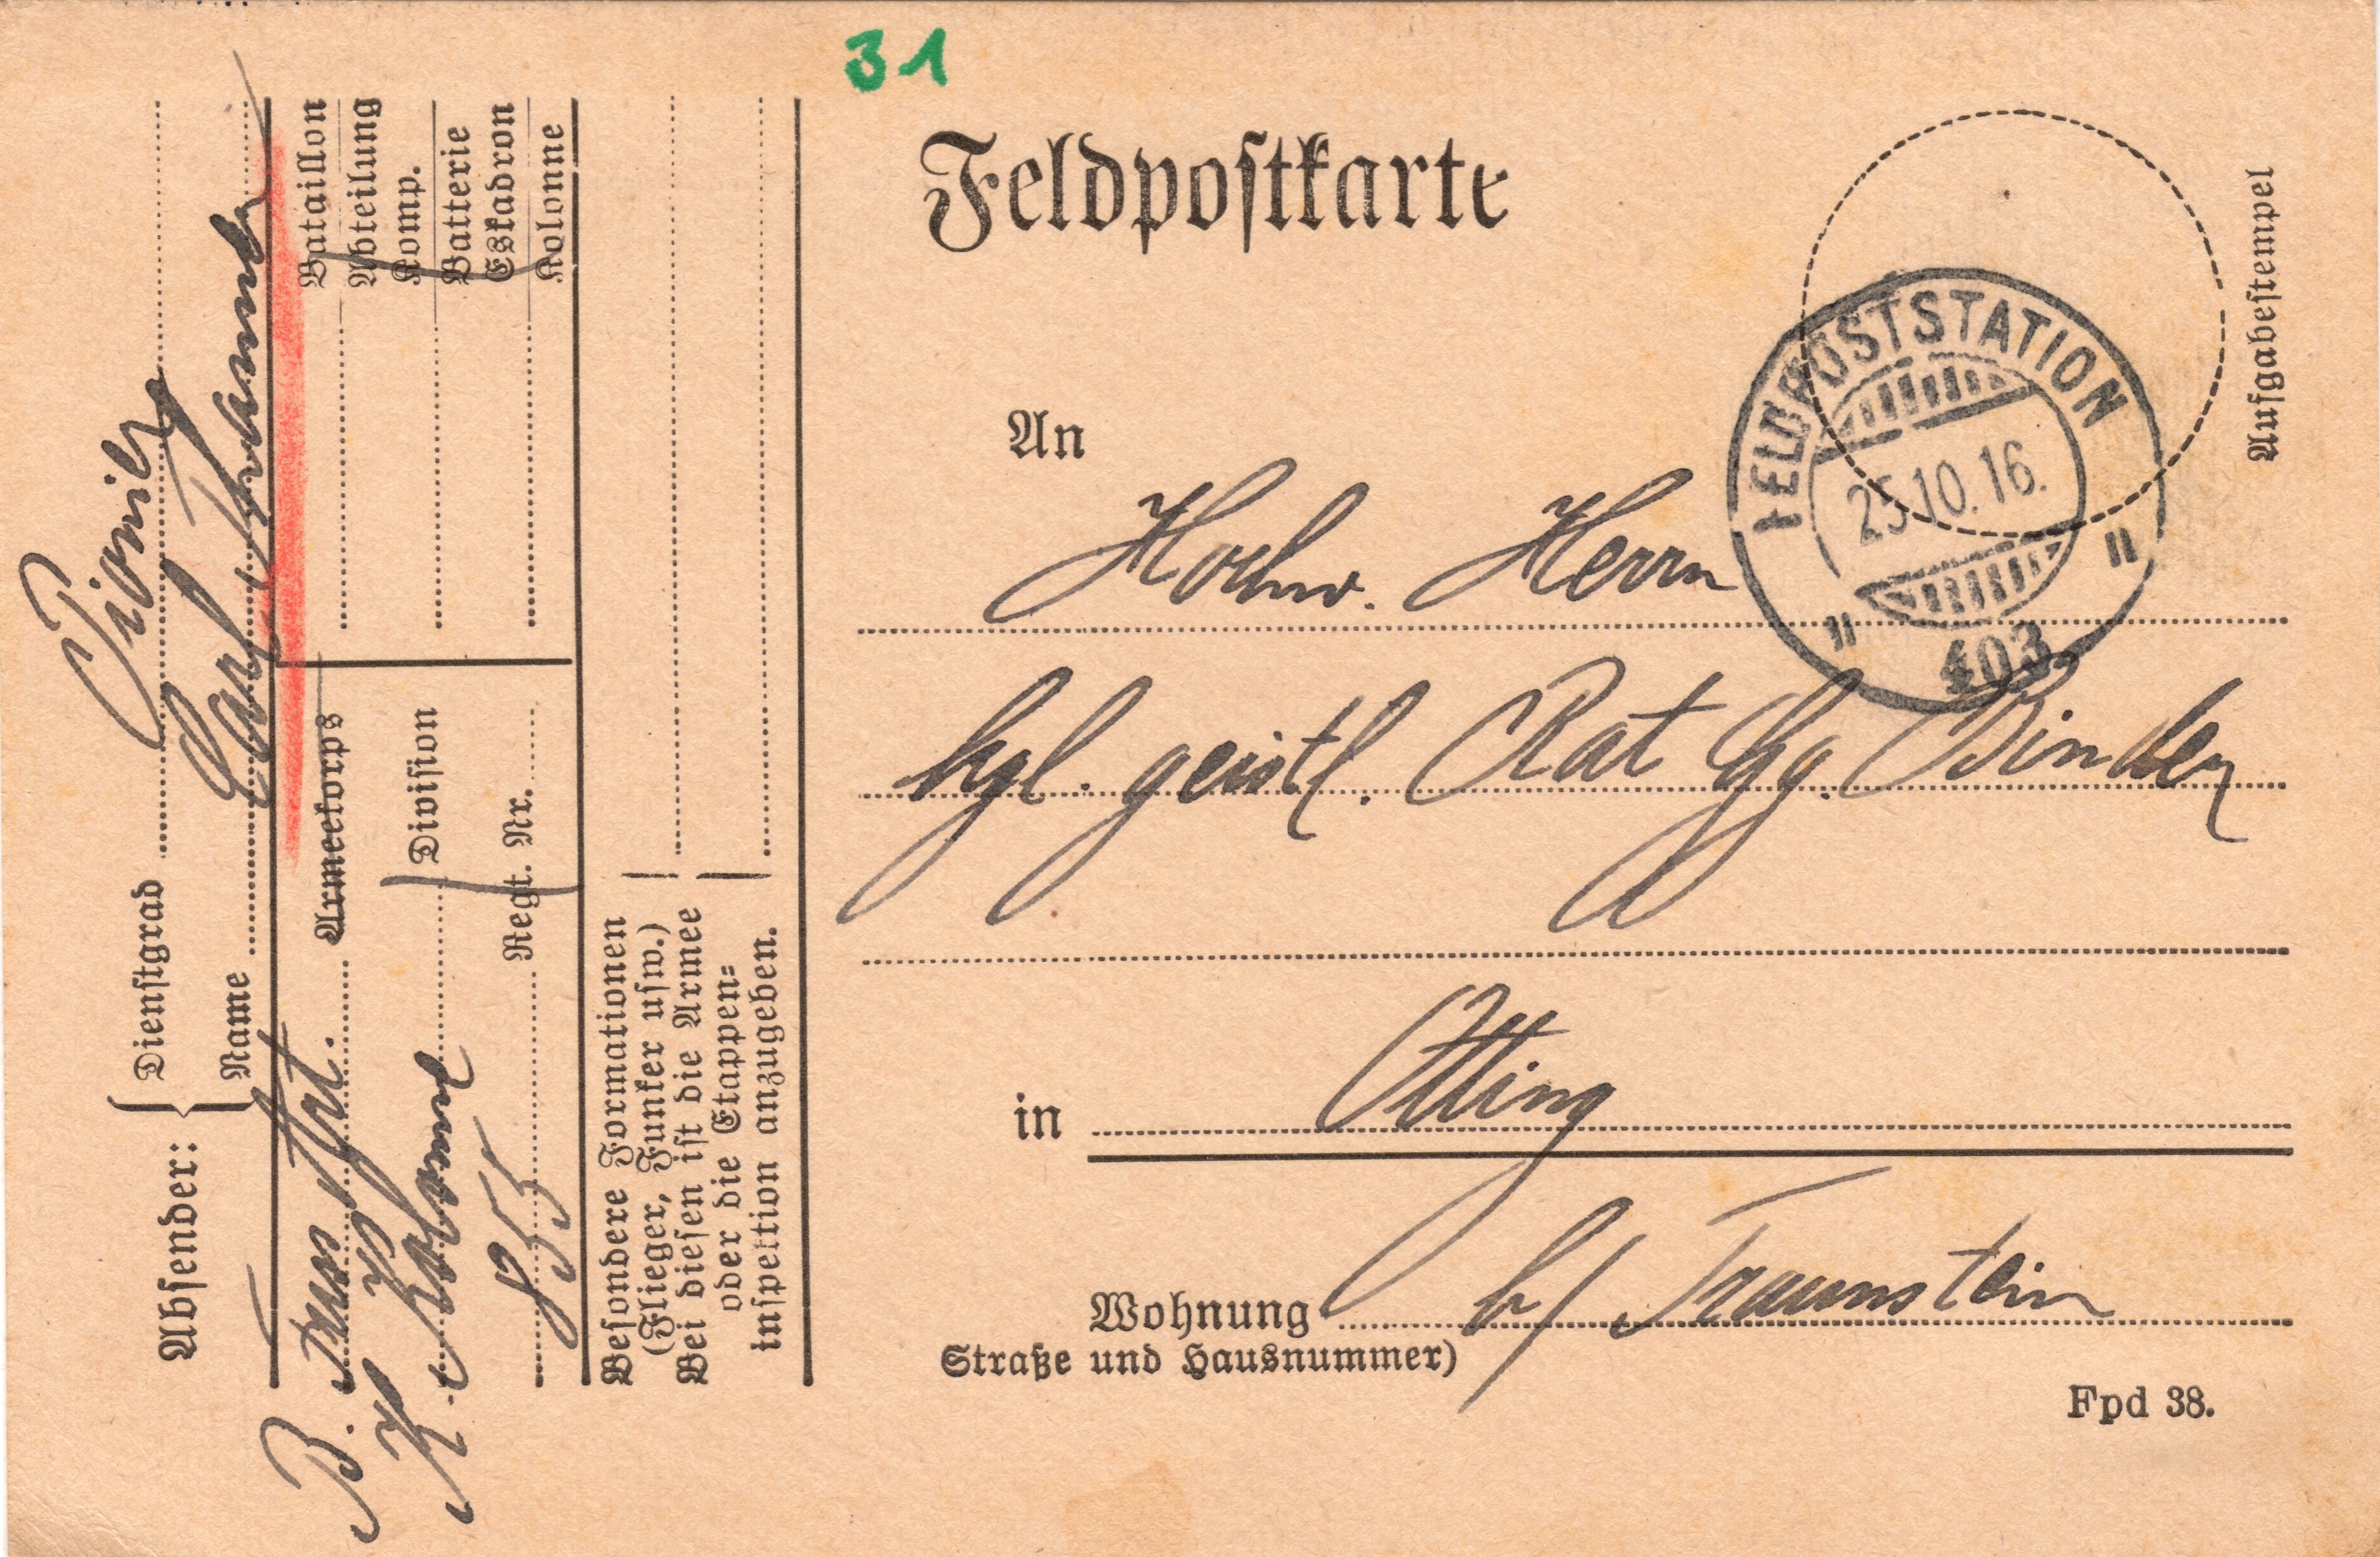 31
Feldpostkarte
Aufgabestempel
FELDPOSTSTATION
25.10.16.
" 403 "
An
Hochw. Herrn
kgl. geistl. Rat Gg. Binder
in Otting
Wohnung b/ Traunstein
Straße und Hausnummer)
Fpd 38.
Absender:
Dienstgrad Pionier
Name Carl
B. Armeekorps
Division
855 Regt. Nr.
Bataillon
Abteilung
Komp.
Batterie
Eskadron
Kolonne
Besondere Formationen
(Flieger, Funker usw.)
Bei diesen ist die Armee
oder die Etappen=
inspektion anzugeben.